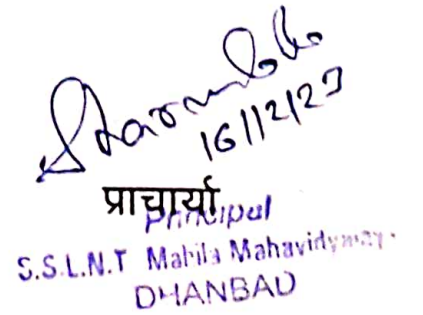 16/12/23
प्राचार्या
Principal
S.S.L.N.T Mahila Mahavidyalay.
DHANBAD